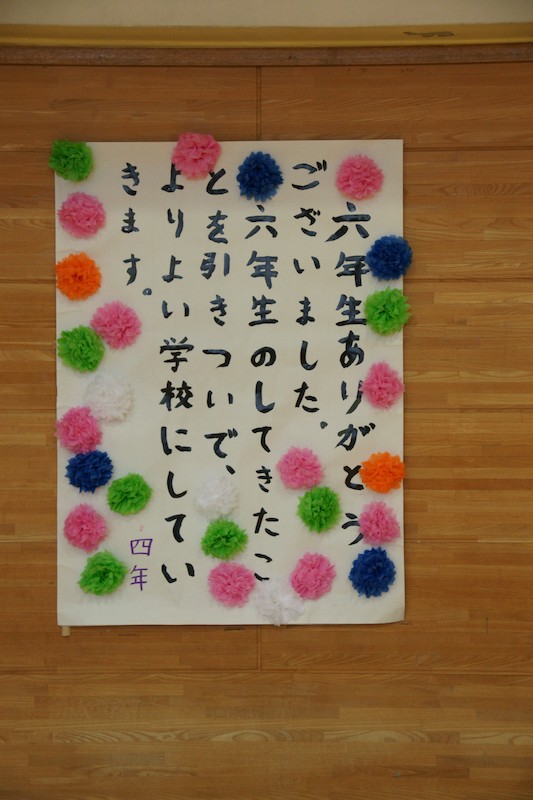 六年生ありがとう
ございました。
六年生のしてきたこ
とを引きついで、
よりよい学校にしてい
きます。
四年